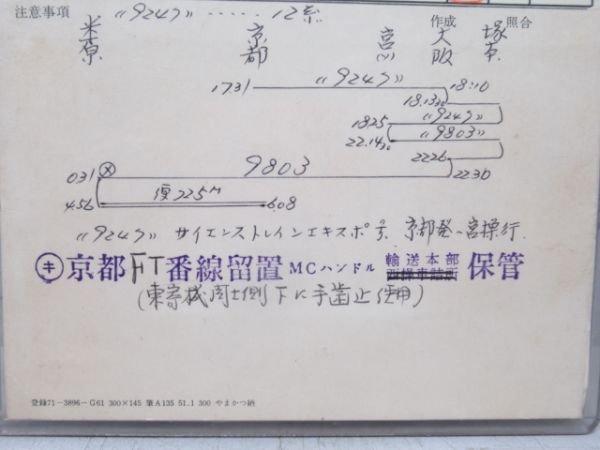 注意事項 «9249» ‥‥‥ 12系
作成 照合
米原 京都 宮(操) 大阪 塚本
1731 «9249» 18:10
18.13 30
1825 «9249»
22.14 30 «9803»
2226
031 ⓧ 9803 2230
456 復225M 6.08
«9249» サイエンストレインエキスポ号 京都発〜宮操行
㋖京都FT番線留置 MCハンドル 輸送本部 保管
(東寄機関士側下に手歯止使用)
登録71-3896-G61 300×145 筆A135 51.1 300 やまかつ納